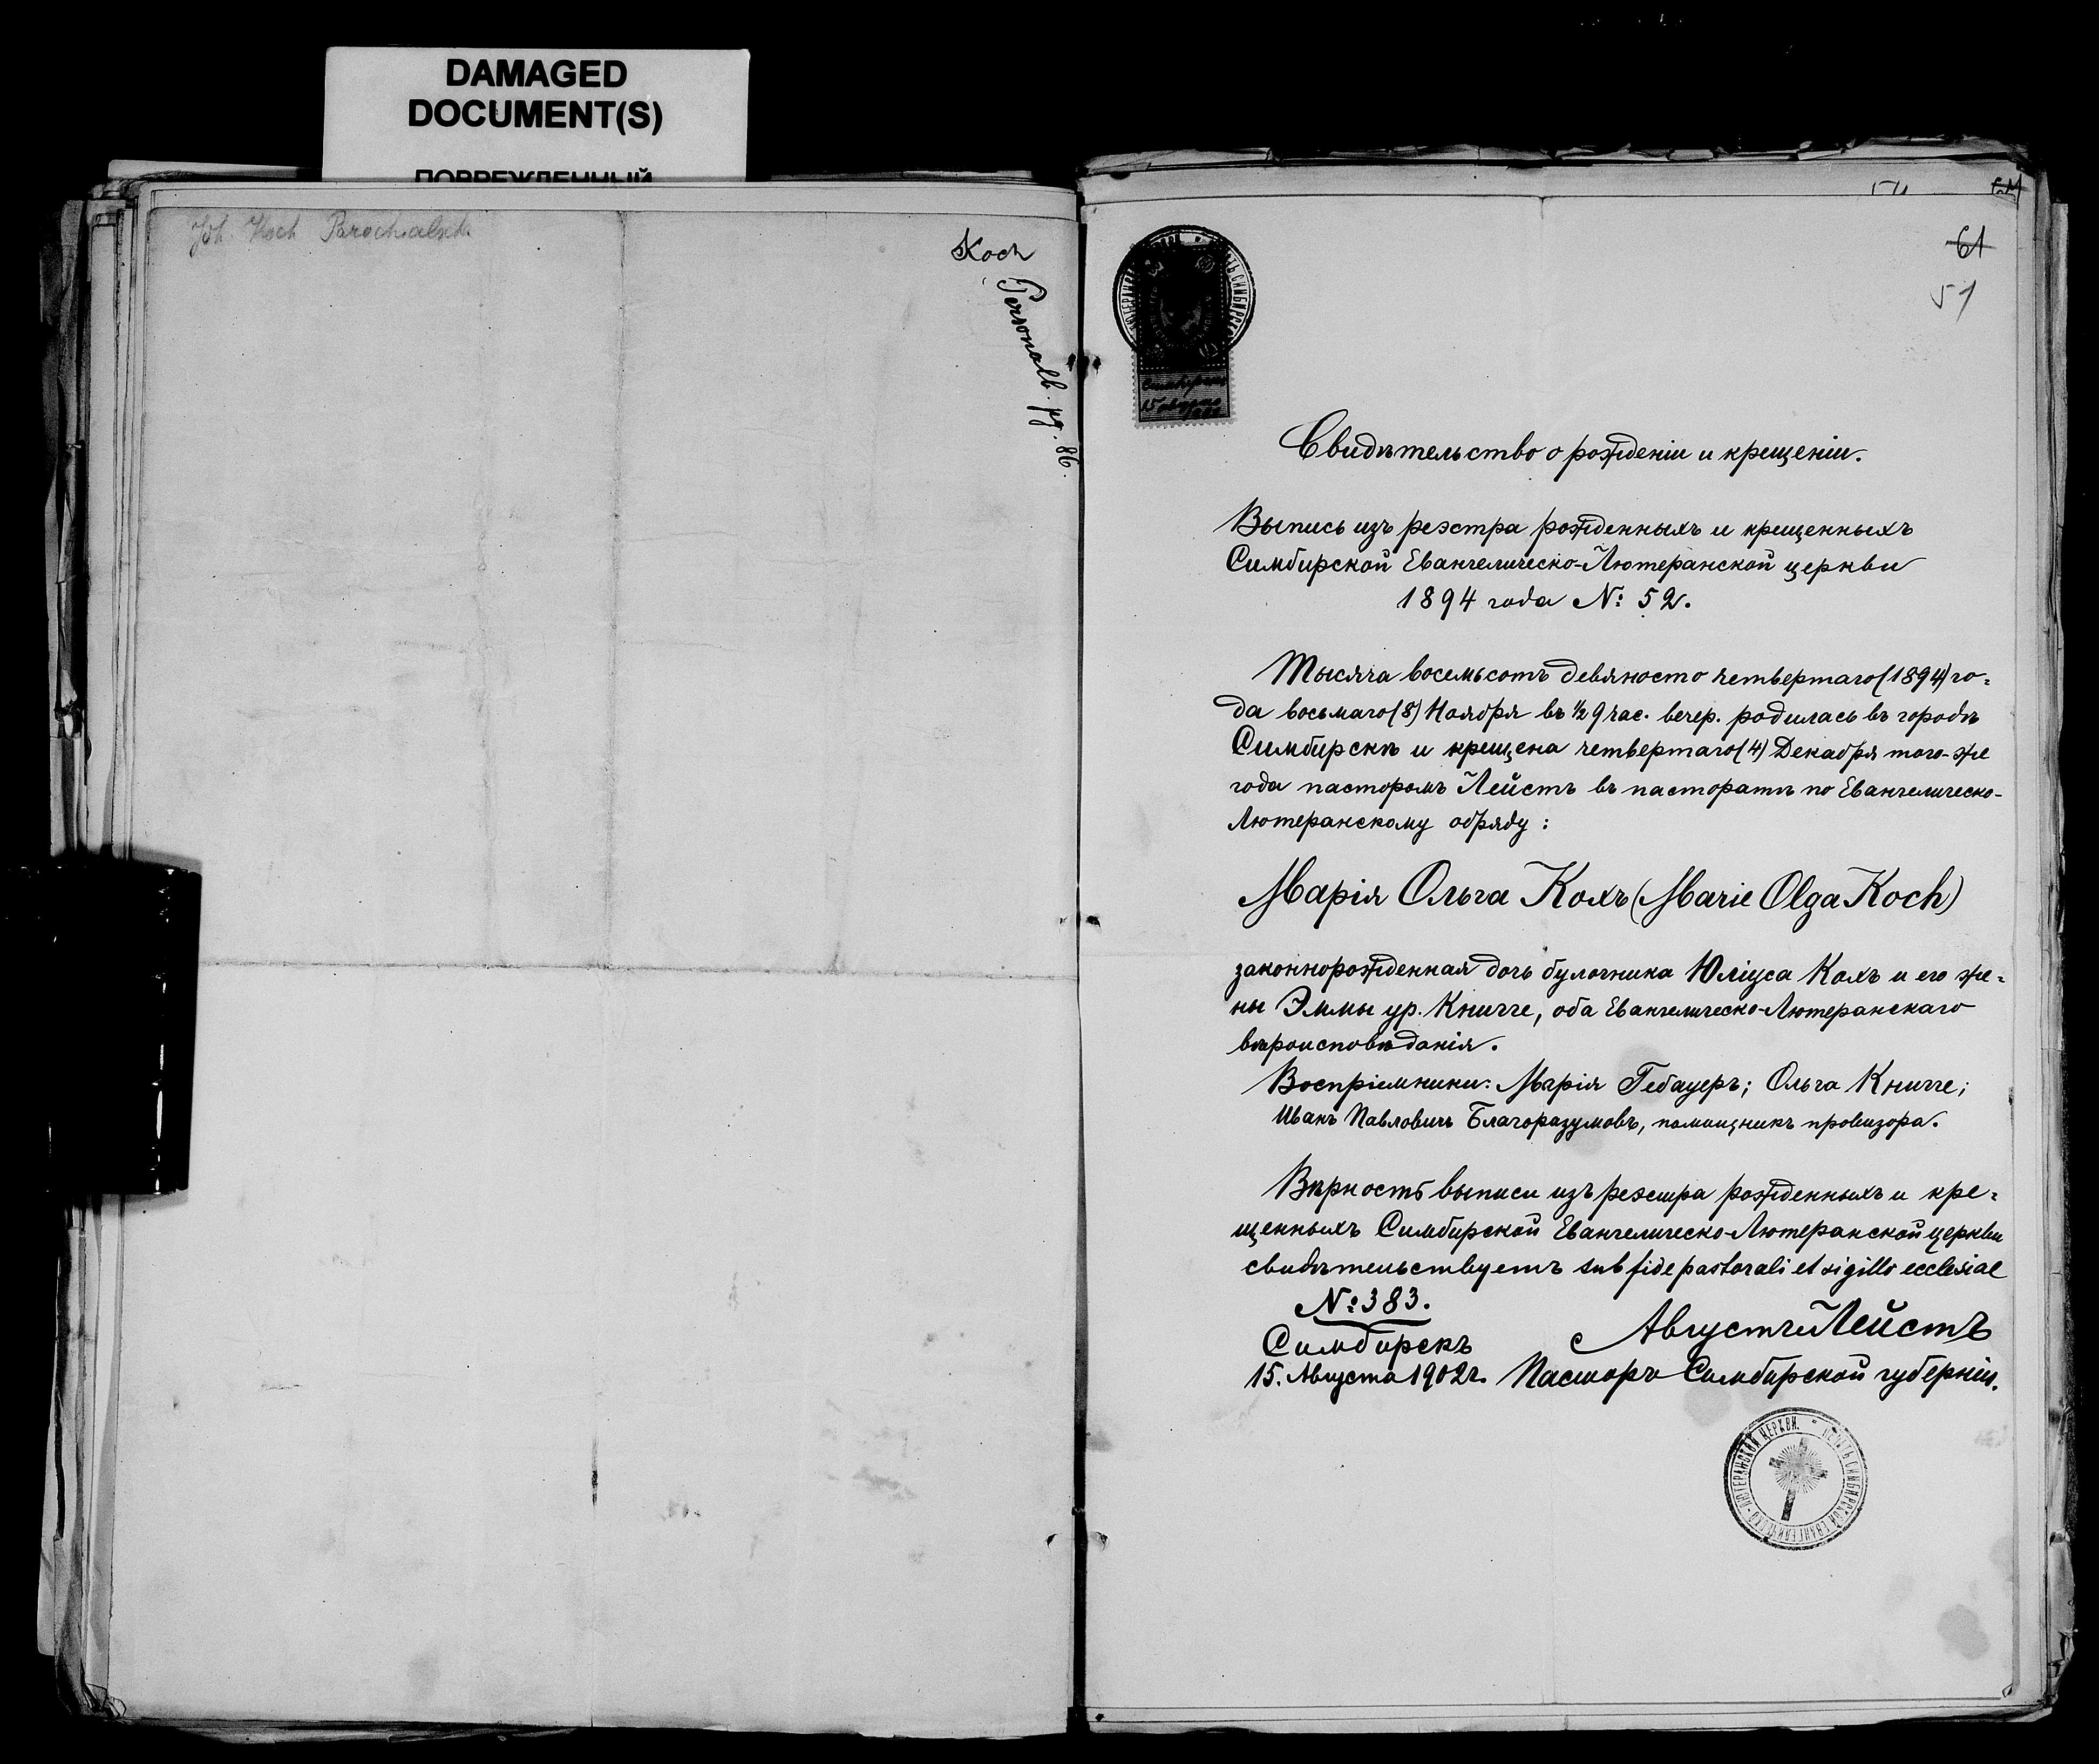 DAMAGED
DOCUMENT(S)
ПОВРЕЖДЕННЫЙ
Joh. Koch
Koch
Personalb. pg. 86.
61
51
Свидѣтельство о рожденіи и крещеніи.
Выпись изъ реэстра рожденныхъ и крещенныхъ
Симбирской Евангелическо-Лютеранской церкви
1894 года № 52.
Тысяча восемьсотъ девяносто четвертаго (1894) го=
да восьмаго (8) Ноября въ ½ 9 час. вечер. родилась въ городѣ
Симбирскѣ и крещена четвертаго (4) Декабря того-же
года пасторомъ Лейстъ въ пасторатѣ по Евангелическо-
Лютеранскому обряду:
Марія Ольга Кохъ (Marie Olga Koch)
законнорожденная дочь булочника Юліуса Кохъ и его же=
ны Эммы ур. Книгге, оба Евангелическо-Лютеранскаго
вѣроисповѣданія.
Воспріемники: Марія Гебауеръ; Ольга Книгге;
Иванъ Павловичъ Благоразумовъ, помощникъ провизора.
Вѣрность выписи изъ реэстра рожденныхъ и кре=
щенныхъ Симбирской Евангелическо-Лютеранской церкви
свидѣтельствуетъ sub fide pastorali et sigillo ecclesiae
№ 383.
Августъ Лейстъ
Симбирскъ
15. Августа 1902 г. Пасторъ Симбирской губерніи.
ПЕЧАТЬ СИМБИРСКОЙ ЕВАНГЕЛИЧЕСКО-ЛЮТЕРАНСКОЙ ЦЕРКВИ.